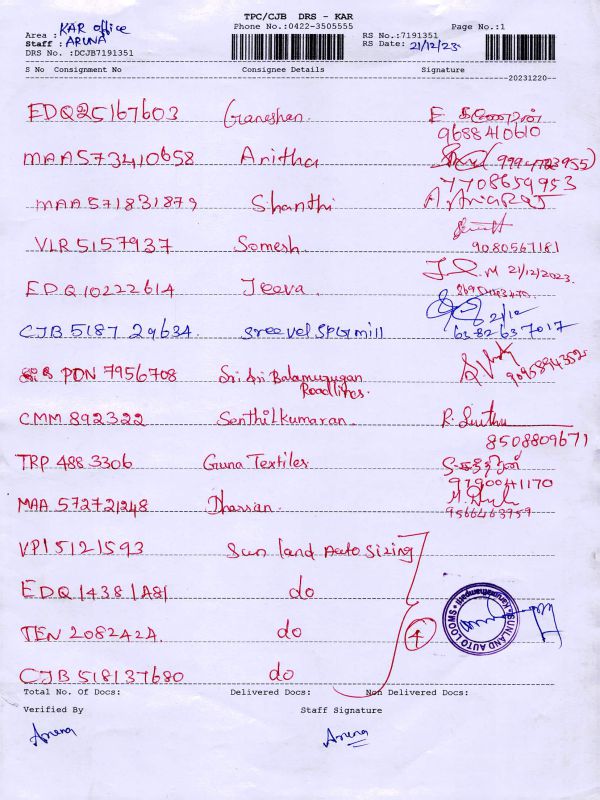 TPC/CJB DRS - KAR
Phone No.:0422-3505555 Page No.:1
Area : KAR office RS No.:7191351
Staff : ARUNA RS Date: 21/12/23
DRS No. :DCJB7191351
S No Consignment No Consignee Details Signature
20231220
EDQ25167603 Ganeshan. E.
9688410610
MAA573410658 Anitha
7708659953
MAA571831879 Shanthi
VLR 5157937 Somesh.
9080567181
EDQ10222614 Jeeva. M 21/12/2023.
CJB 5187 29634. Sree vel Spg mill 21/12
63826 37017
PDN 7956708 Sri Sri Balamurugan
Roadlines.
CMM 892322 Senthilkumaran. R.
8508809671
TRP 488 3306 Guna Textiles
9790041170
MAA 572721248 Dharsian.
9566463759
VPI 5121593 Sun land Auto Sizing
EDQ 14381A81 do
TEN 2082424. do
CJB 518137680 do
4
SUNLAND AUTO LOOMS
Total No. Of Docs: Delivered Docs: Non Delivered Docs:
Verified By Staff Signature
Aruna Aruna